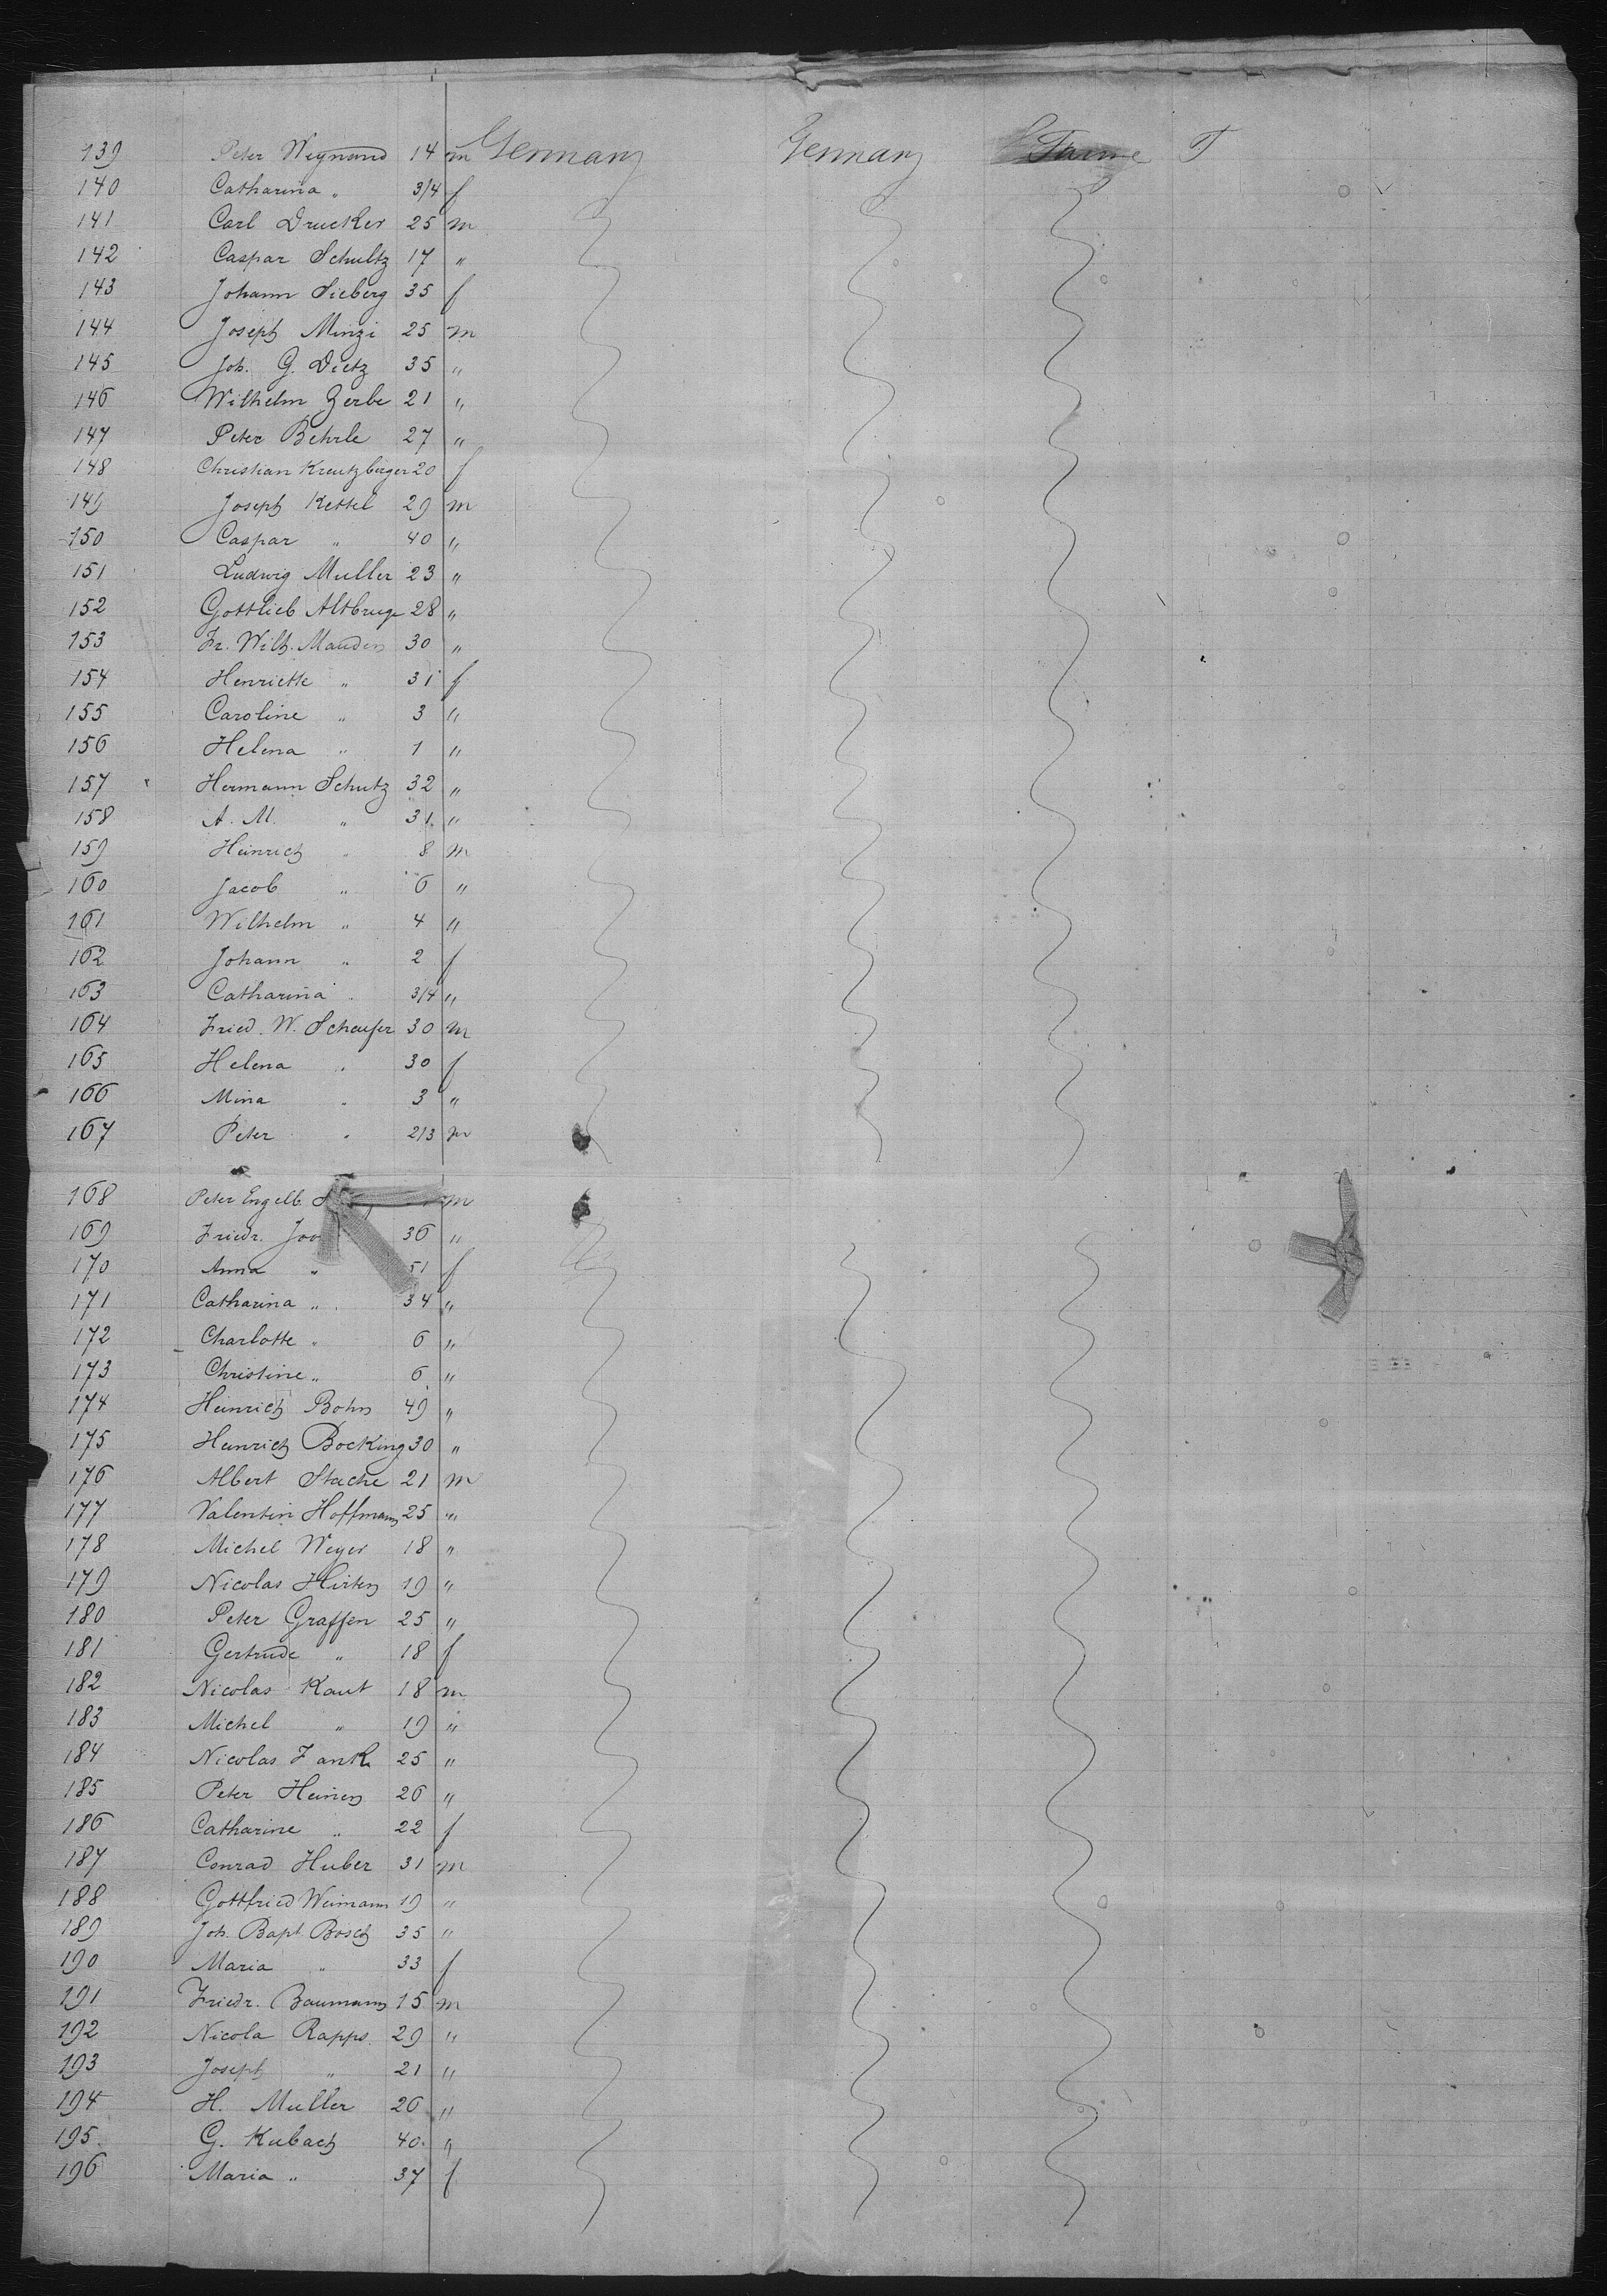 139 Peter Weynand 14 m Germany Germany T
140 Catharina " 3/4 f
141 Carl Drucker 25 m
142 Caspar Schultz 17 "
143 Johann Sieberg 35 f
144 Joseph Minzi 25 m
145 Joh. G. Dietz 35 "
146 Wilhelm Zerbe 21 "
147 Peter Behrle 27 "
148 Christian Kreutzberger 20 f
149 Joseph Kettel 29 m
150 Caspar " 40 "
151 Ludwig Muller 23 "
152 Gottlieb Altbruge 28 "
153 Fr. Wilh. Mauden 30 "
154 Henriette " 31 f
155 Caroline " 3 "
156 Helena " 1 "
157 Hermann Schutz 32 "
158 A. M. " 31 "
159 Heinrich " 8 m
160 Jacob " 6 "
161 Wilhelm " 4 "
162 Johann " 2 f
163 Catharina " 3/4 "
164 Fried. W. Schaufer 30 m
165 Helena " 30 f
166 Mina " 3 "
167 Peter " 2/3 m
168 Peter Engelb. m
169 Friedr. 36 "
170 Anna " 51 f
171 Catharina " 34 "
172 Charlotte " 6 "
173 Christine " 6 "
174 Heinrich Bohn 49 "
175 Heinrich Bocking 30 "
176 Albert Stache 21 m
177 Valentin Hoffmann 25 "
178 Michel Weyer 18 "
179 Nicolas Hirten 19 "
180 Peter Graffen 25 "
181 Gertrude " 18 f
182 Nicolas Kaut 18 m
183 Michel " 19 "
184 Nicolas Zank 25 "
185 Peter Heinen 26 "
186 Catharine " 22 f
187 Conrad Huber 31 m
188 Gottfried Weimann 19 "
189 Joh. Bapt. Bosch 35 "
190 Maria " 33 f
191 Friedr. Baumann 15 m
192 Nicola Rapps 29 "
193 Joseph " 21 "
194 H. Muller 26 "
195 G. Kubach 40 "
196 Maria " 37 f